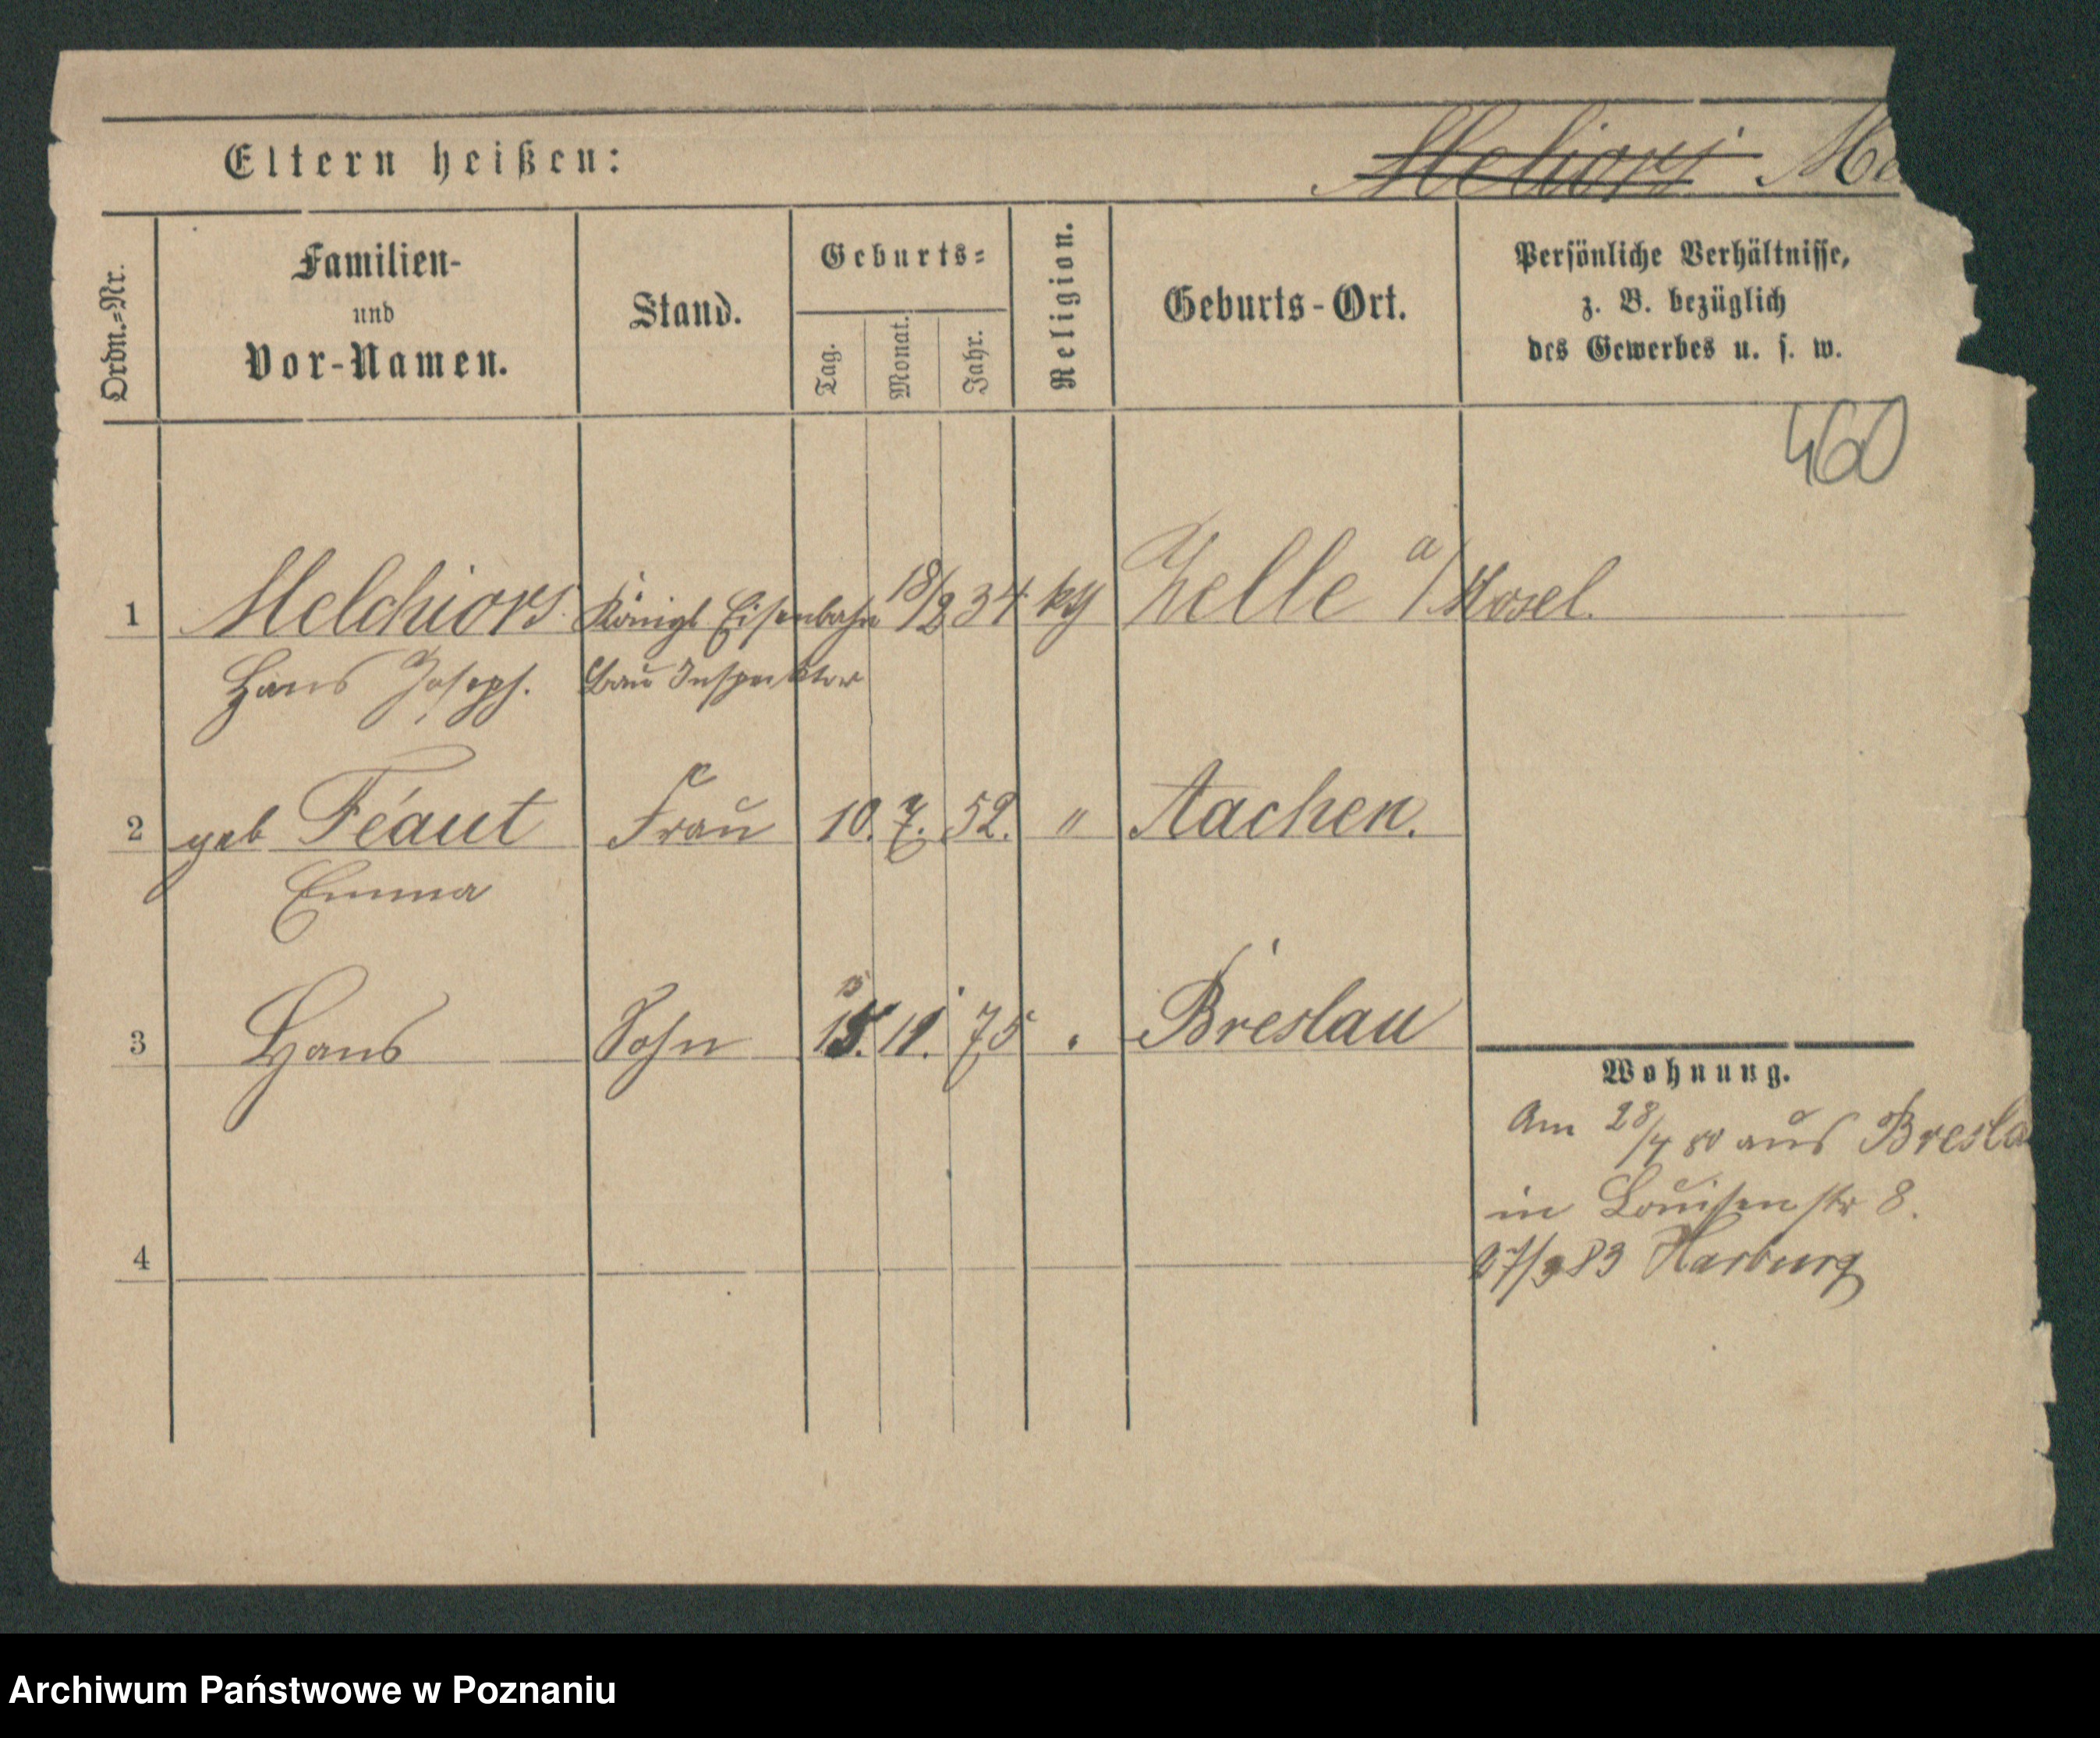 Eltern heißen:
Meliors Me
Ordn.=Nr.
Familien-
und
Vor-Namen.
Stand.
Geburts=
Tag.
Monat.
Jahr.
Religion.
Geburts-Ort.
Persönliche Verhältnisse,
z. B. bezüglich
des Gewerbes u. s. w.
460
1 Melchiors Königl Eisenbahn 18/2 34 Zelle a/Mosel.
Hans Joseph. Bau Inspektor
2 geb Féaut Frau 10. 7. 52. " Aachen.
Emma
3 Hans Sohn 15. 11. 75 Breslau
Wohnung.
Am 28/4 80 aus Bresla
in Louisenstr 8.
27/3 83 Harburg
4
Archiwum Państwowe w Poznaniu